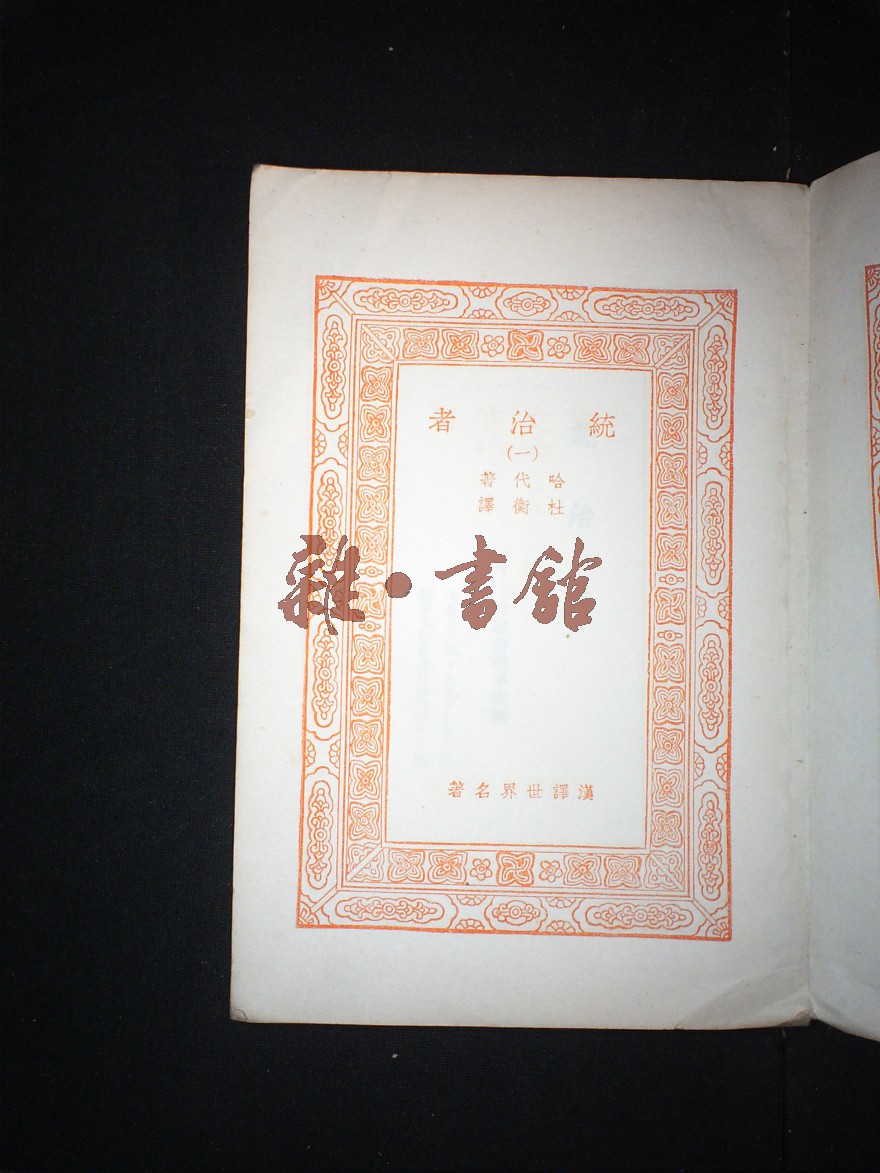 統治者
(一)
哈代著
杜衡譯
雜·書館
漢譯世界名著